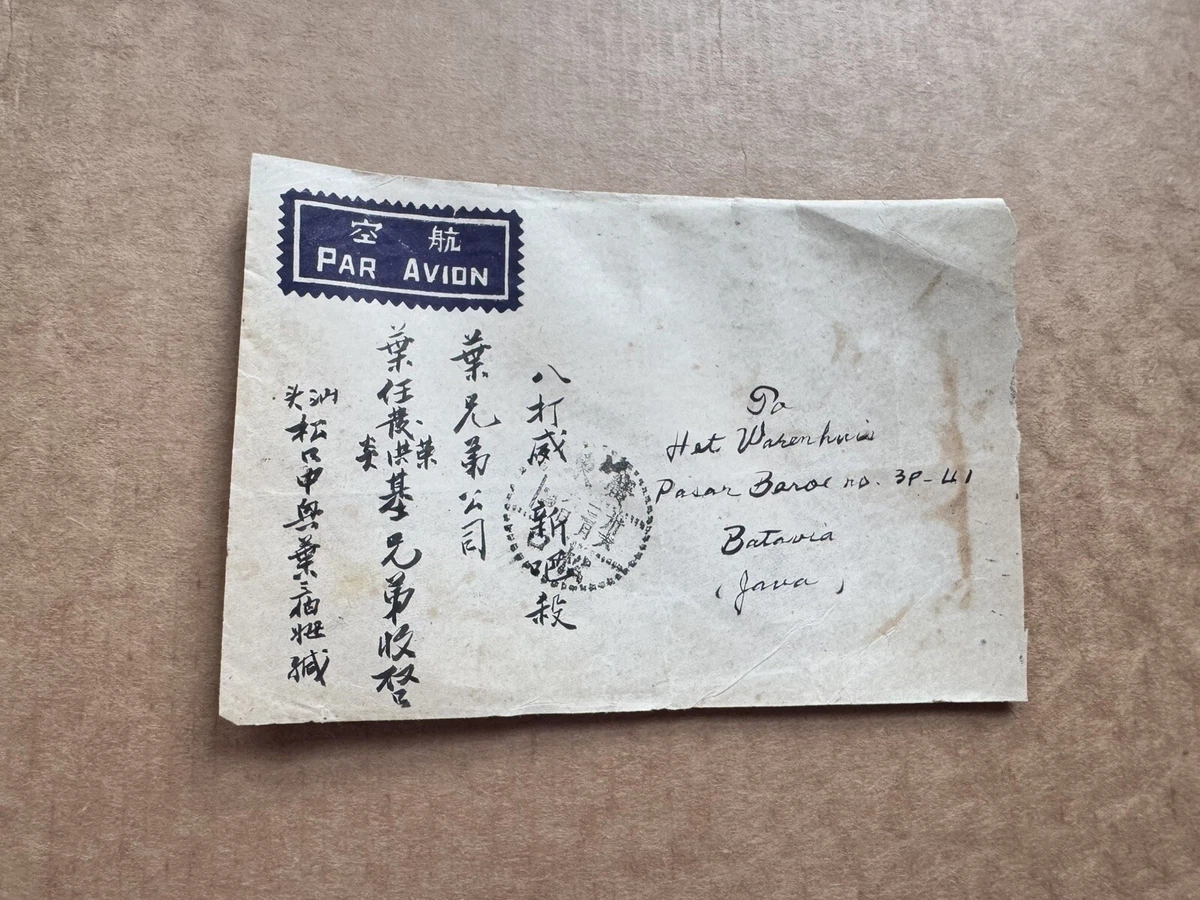 空航
PAR AVION
八打威 新吧殺
葉兄弟公司
葉任發洪基兄弟收啓
榮
炎
汕头
松口中興葉
緘
To
Het Warenhuis
Pasar Baroe no. 39-41
Batavia
(Java)